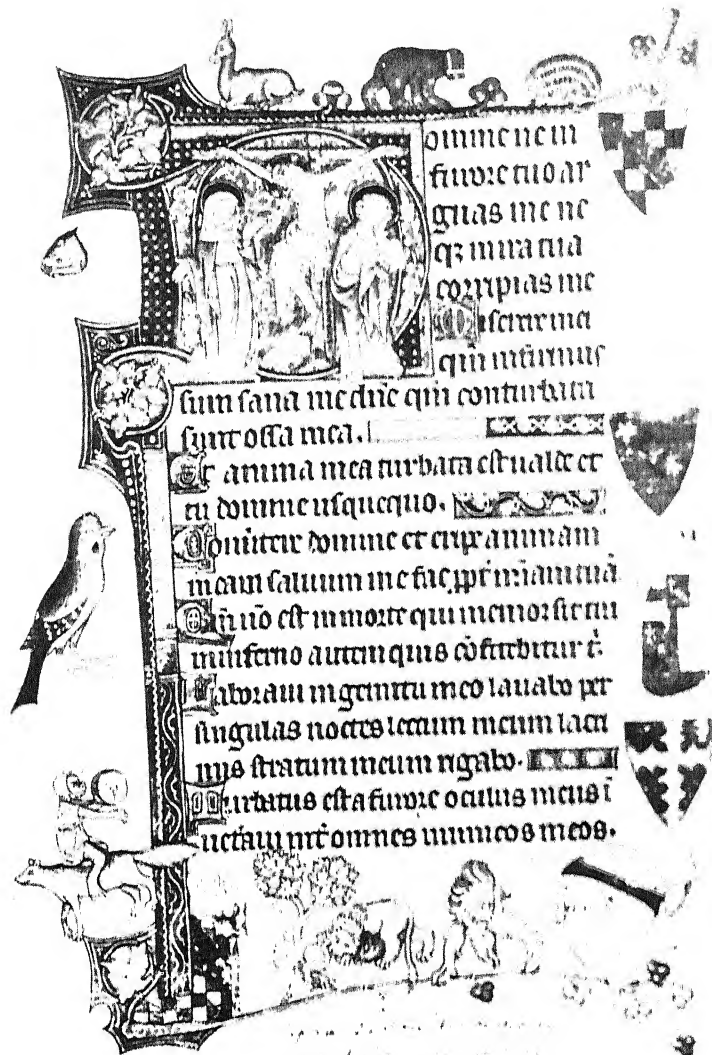 omine ne in
furore tuo ar
guas me ne
qꝫ in ira tua
corripias me
Miserere mei
qm̄ infirmus
sum sana me dn̄e qm̄ conturbata
sunt ossa mea.
Et anima mea turbata est ualde et
tu domine usquequo.
Conuertere domine et eripe animam
meam saluum me fac ꝓpt̄ mīam tuā
Qm̄ nō est in morte qui memor sit tui
in inferno autem quis cōfitebitur t̄.
Laboraui in gemitu meo lauabo per
singulas noctes lectum meum lacri
mis stratum meum rigabo.
Turbatus est a furore oculus meus ī
ueteraui int̄ omnes inimicos meos.